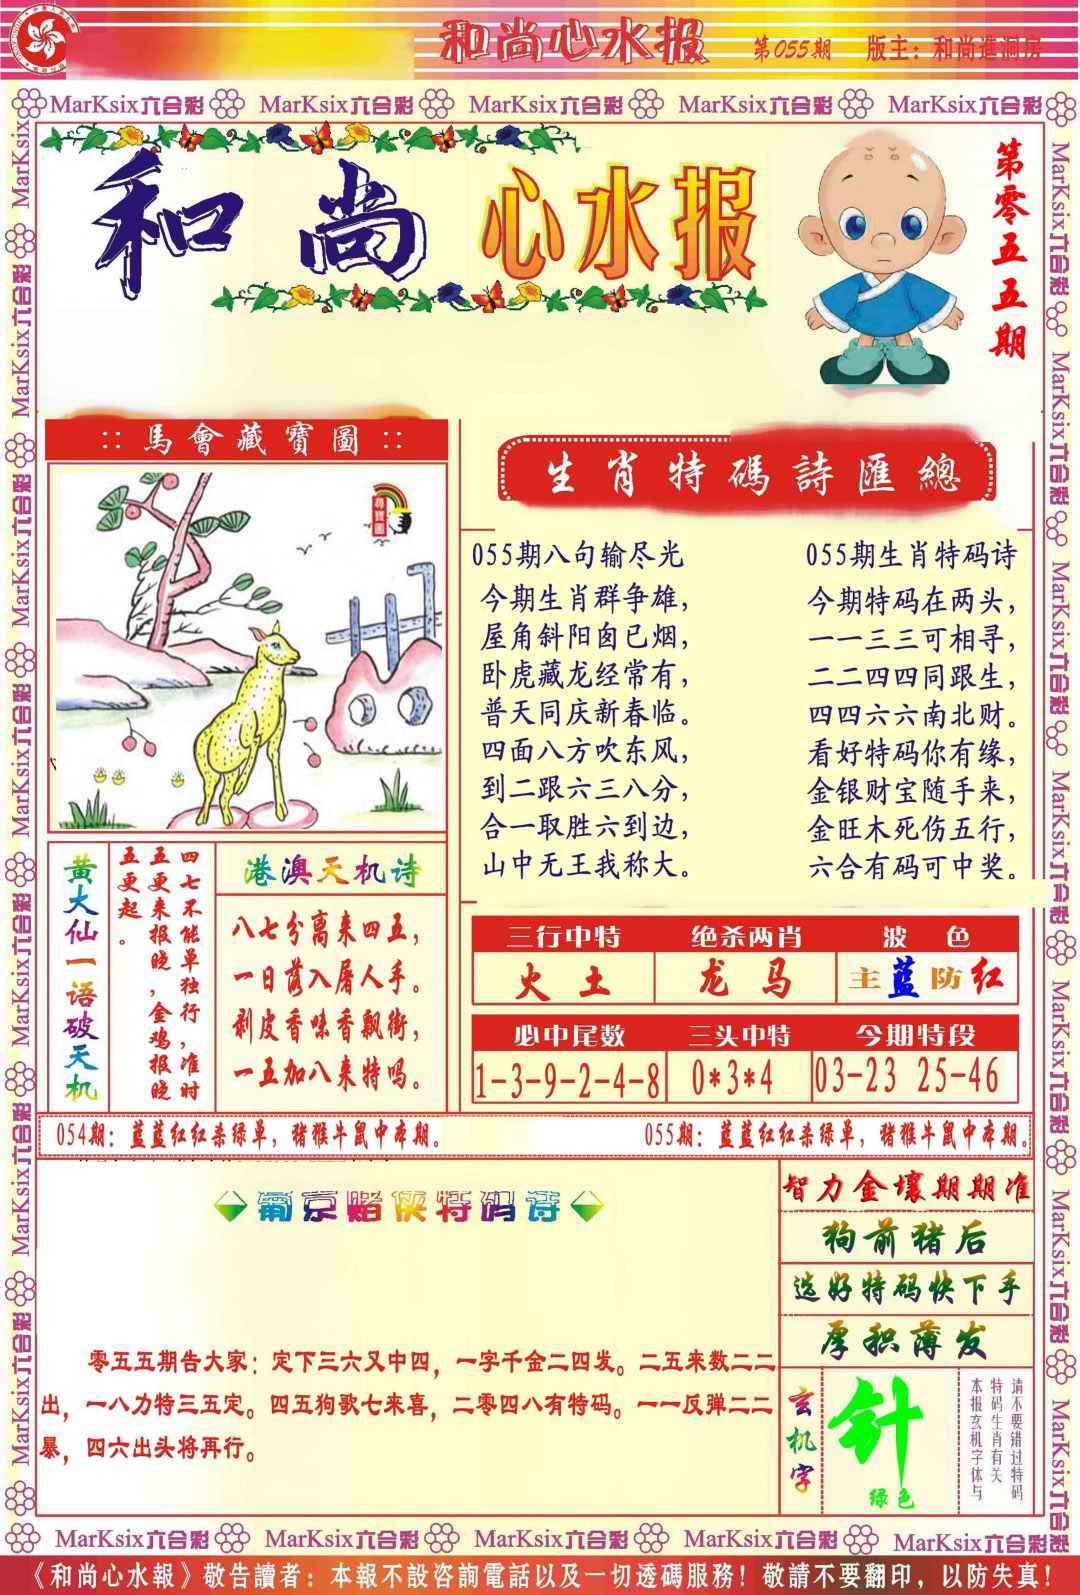 和尚心水报
第055期
版主：和尚進洞房
MarKsix六合彩 MarKsix六合彩 MarKsix六合彩 MarKsix六合彩 MarKsix六合彩
和尚心水报
第零五五期
::馬會藏寶圖::
生肖特碼詩匯總
055期八句输尽光
今期生肖群争雄，
屋角斜阳囱已烟，
卧虎藏龙经常有，
普天同庆新春临。
四面八方吹东风，
到二跟六三八分，
合一取胜六到边，
山中无王我称大。
055期生肖特码诗
今期特码在两头，
一一三三可相寻，
二二四四同跟生，
四四六六南北财。
看好特码你有缘，
金银财宝随手来，
金旺木死伤五行，
六合有码可中奖。
黄大仙一语破天机
四七不能单独行，准时
五更来报晓，金鸡报晓
五更起。
港澳天机诗
八七分离来四五，
一日落入屠人手。
剥皮香味香飘街，
一五加八来特吗。
三行中特 绝杀两肖 波色
火土 龙马 主蓝防红
必中尾数 三头中特 今期特段
1-3-9-2-4-8 0*3*4 03-23 25-46
054期：蓝蓝红红杀绿单，猪猴牛鼠中本期。
055期：蓝蓝红红杀绿单，猪猴牛鼠中本期。
葡京赌侠特码诗
零五五期告大家：定下三六又中四，一字千金二四发。二五来数二二
出，一八力特三五定。四五狗歌七来喜，二零四八有特码。一一反弹二二
暴，四六出头将再行。
智力金壤期期准
狗前猪后
选好特码快下手
厚积薄发
玄机字
针
绿色
请不要错过特码
特码生肖有关
本报玄机字体与
MarKsix六合彩 MarKsix六合彩 MarKsix六合彩 MarKsix六合彩 MarKsix六合彩
《和尚心水報》敬告讀者：本報不設咨詢電話以及一切透碼服務！敬請不要翻印，以防失真！